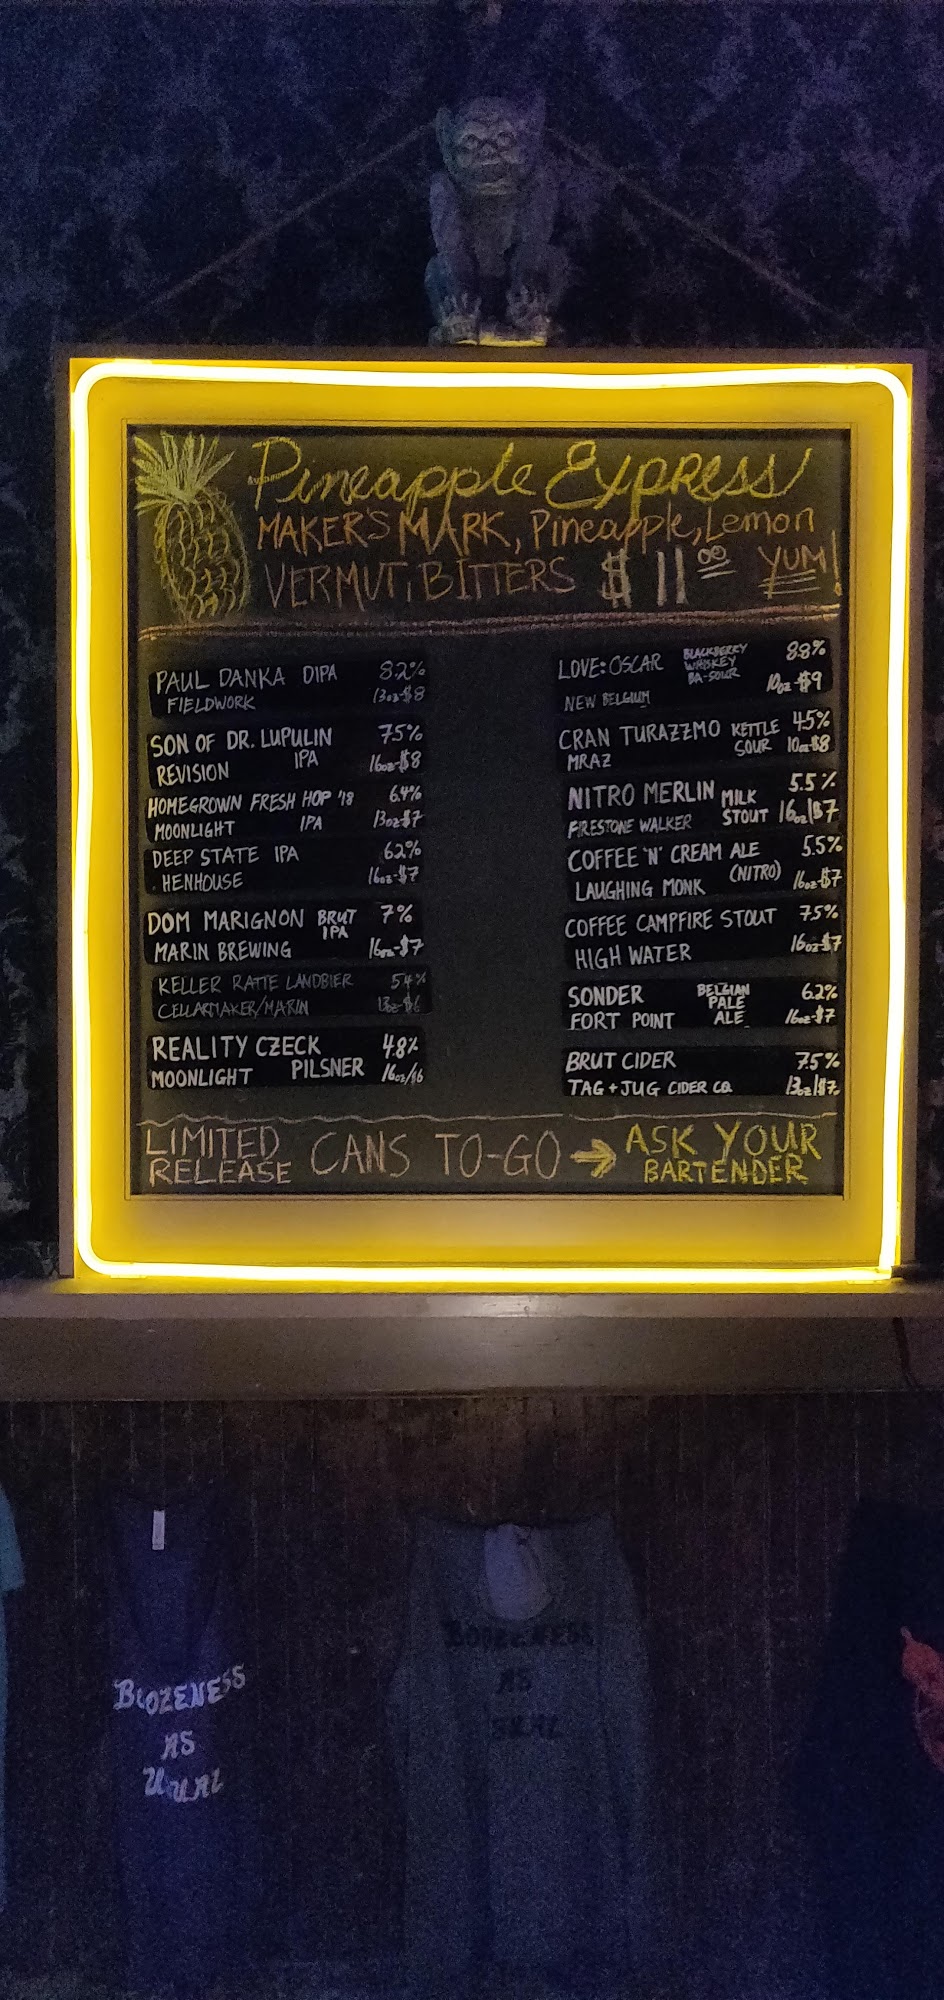 Pineapple Express
MAKER'S MARK, Pineapple, Lemon
VERMUT, BITTERS $11.00 YUM!
PAUL DANKA DIPA 8.2%
FIELDWORK 13oz-$8
SON OF DR. LUPULIN 7.5%
REVISION IPA 16oz-$8
HOMEGROWN FRESH HOP '18 6.4%
MOONLIGHT IPA 13oz-$7
DEEP STATE IPA 6.2%
HENHOUSE 16oz-$7
DOM MARIGNON BRUT IPA 7%
MARIN BREWING 16oz-$7
KELLER RATTE LANDBIER 5.4%
CELLARMAKER/MARIN 13oz-$6
REALITY CZECK 4.8%
MOONLIGHT PILSNER 16oz/$6
LOVE: OSCAR BLACKBERRY WHISKEY BA-SOUR 8.8%
NEW BELGIUM 10oz-$9
CRAN TURAZZMO KETTLE 4.5%
MRAZ SOUR 10oz-$8
NITRO MERLIN MILK 5.5%
FIRESTONE WALKER STOUT 16oz|$7
COFFEE 'N' CREAM ALE 5.5%
LAUGHING MONK (NITRO) 16oz-$7
COFFEE CAMPFIRE STOUT 7.5%
HIGH WATER 16oz-$7
SONDER BELGIAN PALE 6.2%
FORT POINT ALE 16oz-$7
BRUT CIDER 7.5%
TAG + JUG CIDER CO. 13oz|$7
LIMITED RELEASE CANS TO-GO → ASK YOUR BARTENDER
BOOZENESS
AS
UUAL
BOOZENESS
AS